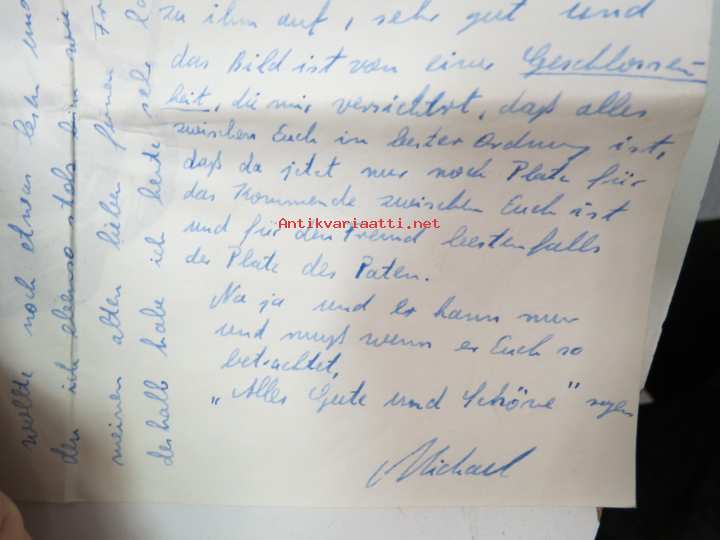 zu ihm auf, sehr gut und
das Bild ist von einer Geschlossen-
heit, die mir versichert, daß alles
zwischen Euch in bester Ordnung ist,
daß da jetzt nur noch Platz für
das Kommende zwischen Euch ist
und für den Freund bestenfalls
der Platz des Paten.
Na ja und er kann nur
und muß wenn er Euch so
betrachtet,
„Alles Gute und Schöne" sagen
Michael
wollte noch etwas und
den ich ebenso stolz
meinen alten lieben
deshalb habe ich heute sehr
Antikvariaatti.net